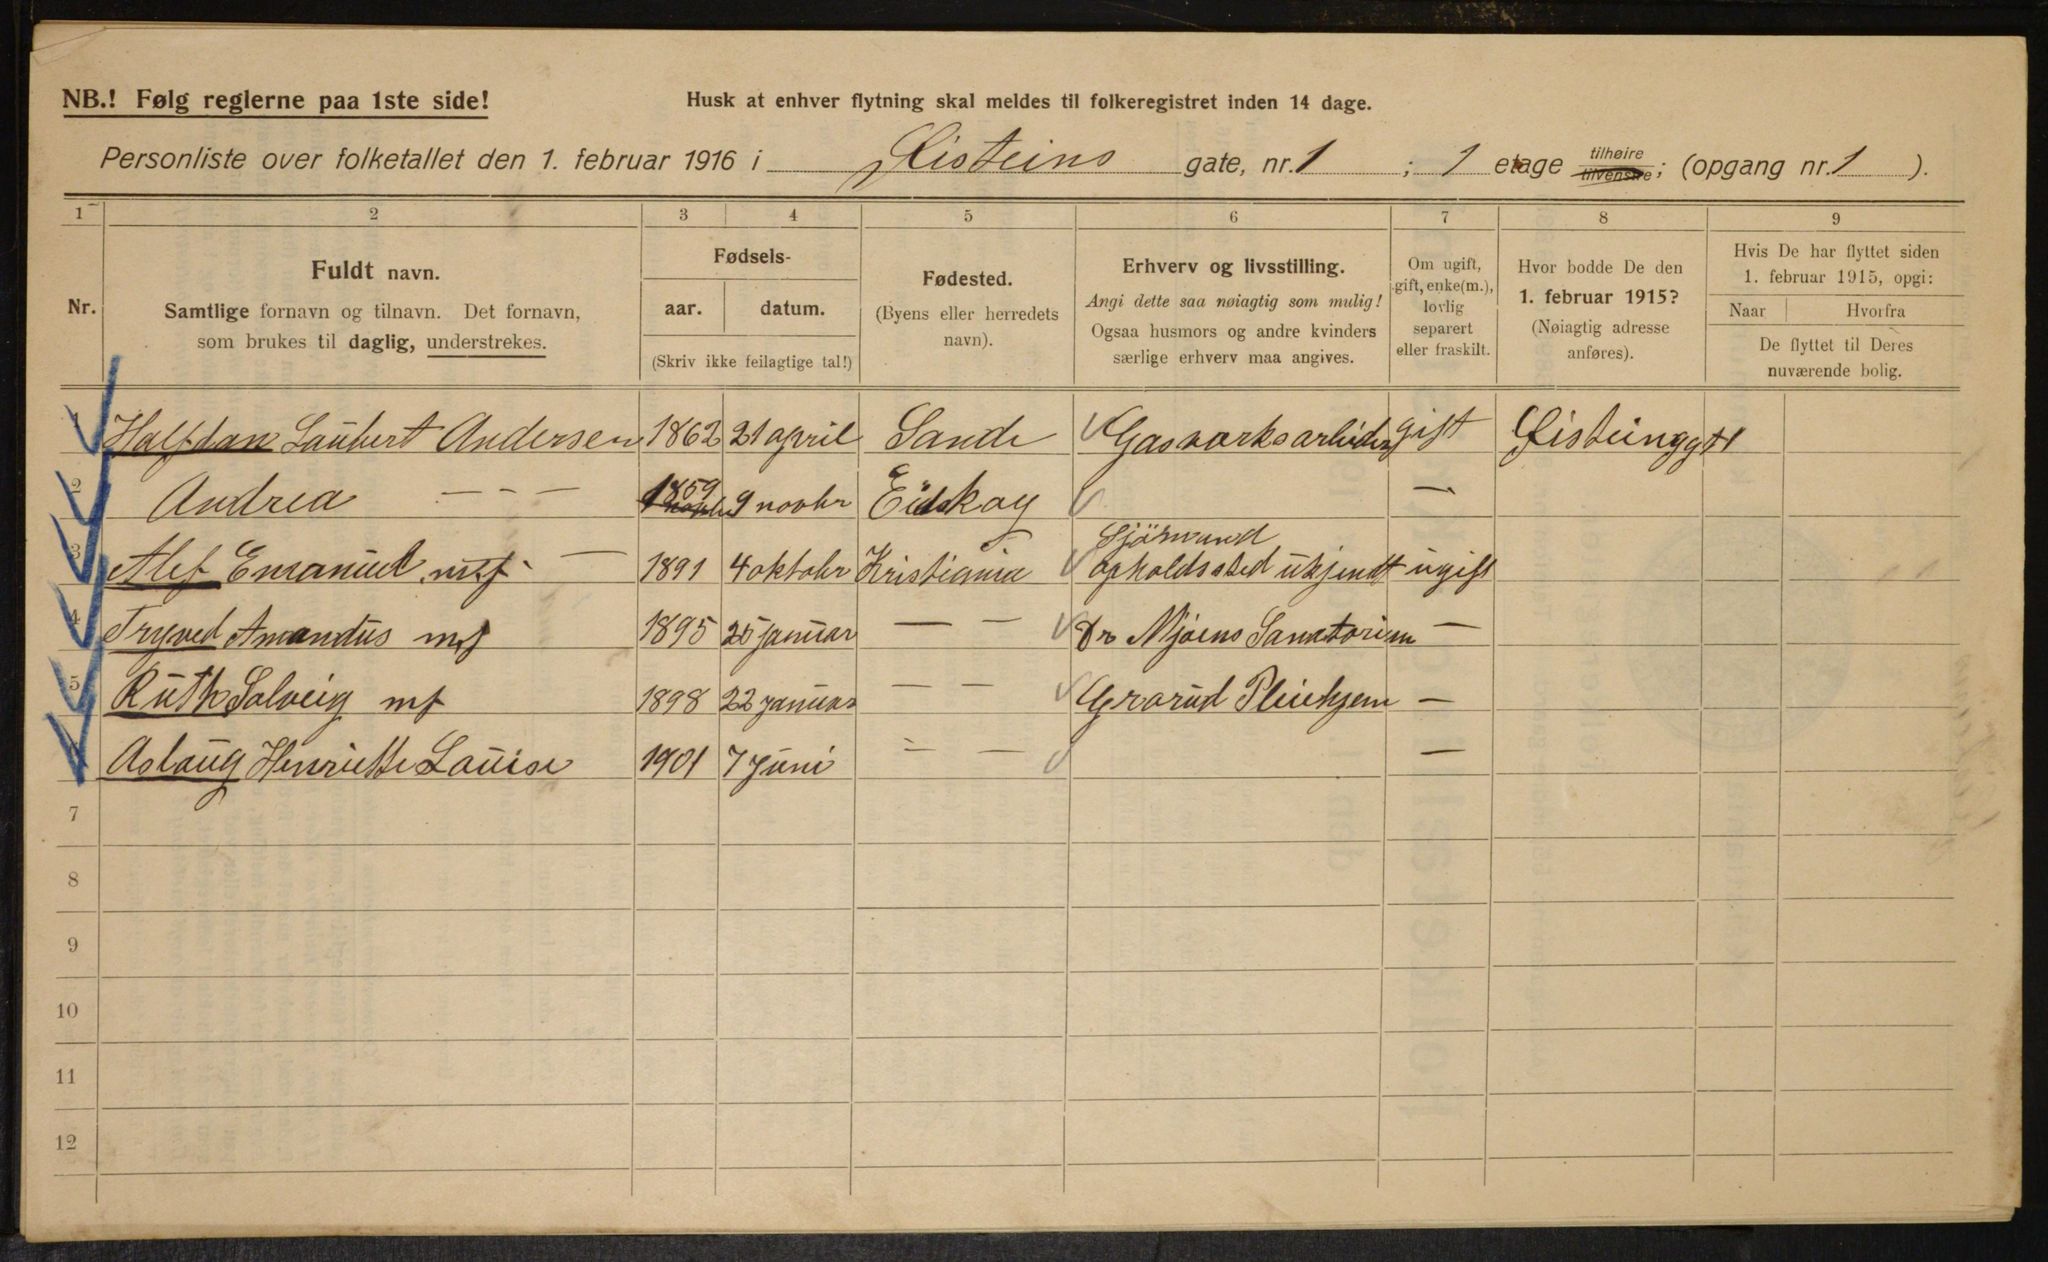 NB.! Følg reglerne paa 1ste side!
Husk at enhver flytning skal meldes til folkeregistret inden 14 dage.
Personliste over folketallet den 1. februar 1916 i Øisteins gate, nr. 1 ; 1 etage tilhøire tilvenstre; (opgang nr. 1 ).
1 2 3 4 5 6 7 8 9
Nr.
Fuldt navn.
Samtlige fornavn og tilnavn. Det fornavn,
som brukes til daglig, understrekes.
Fødsels-
aar. datum.
(Skriv ikke feilagtige tal!)
Fødested.
(Byens eller herredets
navn).
Erhverv og livsstilling.
Angi dette saa nøiagtig som mulig!
Ogsaa husmors og andre kvinders
særlige erhverv maa angives.
Om ugift,
gift, enke(m.),
lovlig
separert
eller fraskilt.
Hvor bodde De den
1. februar 1915?
(Nøiagtig adresse
anføres).
Hvis De har flyttet siden
1. februar 1915, opgi:
Naar Hvorfra
De flyttet til Deres
nuværende bolig.
1 Halfdan Laubert Andersen 1862 21 april Sande Gasværksarbeider gift
2 Andrea — - — 1859 9 novbr Eidskog —
3 Alef Emanuel — 1891 4 oktobr Kristiania Sjömand
opholdssted ukjendt ugift
4 Trygved Amandus 1895 25 januar — — Dr Mjøens Sanatorium —
5 Ruth Solveig 1898 22 januar — — Grorud Pleiehjem —
6 Aslaug Henriette Louise 1901 7 juni — — —
7
8
9
10
11
12